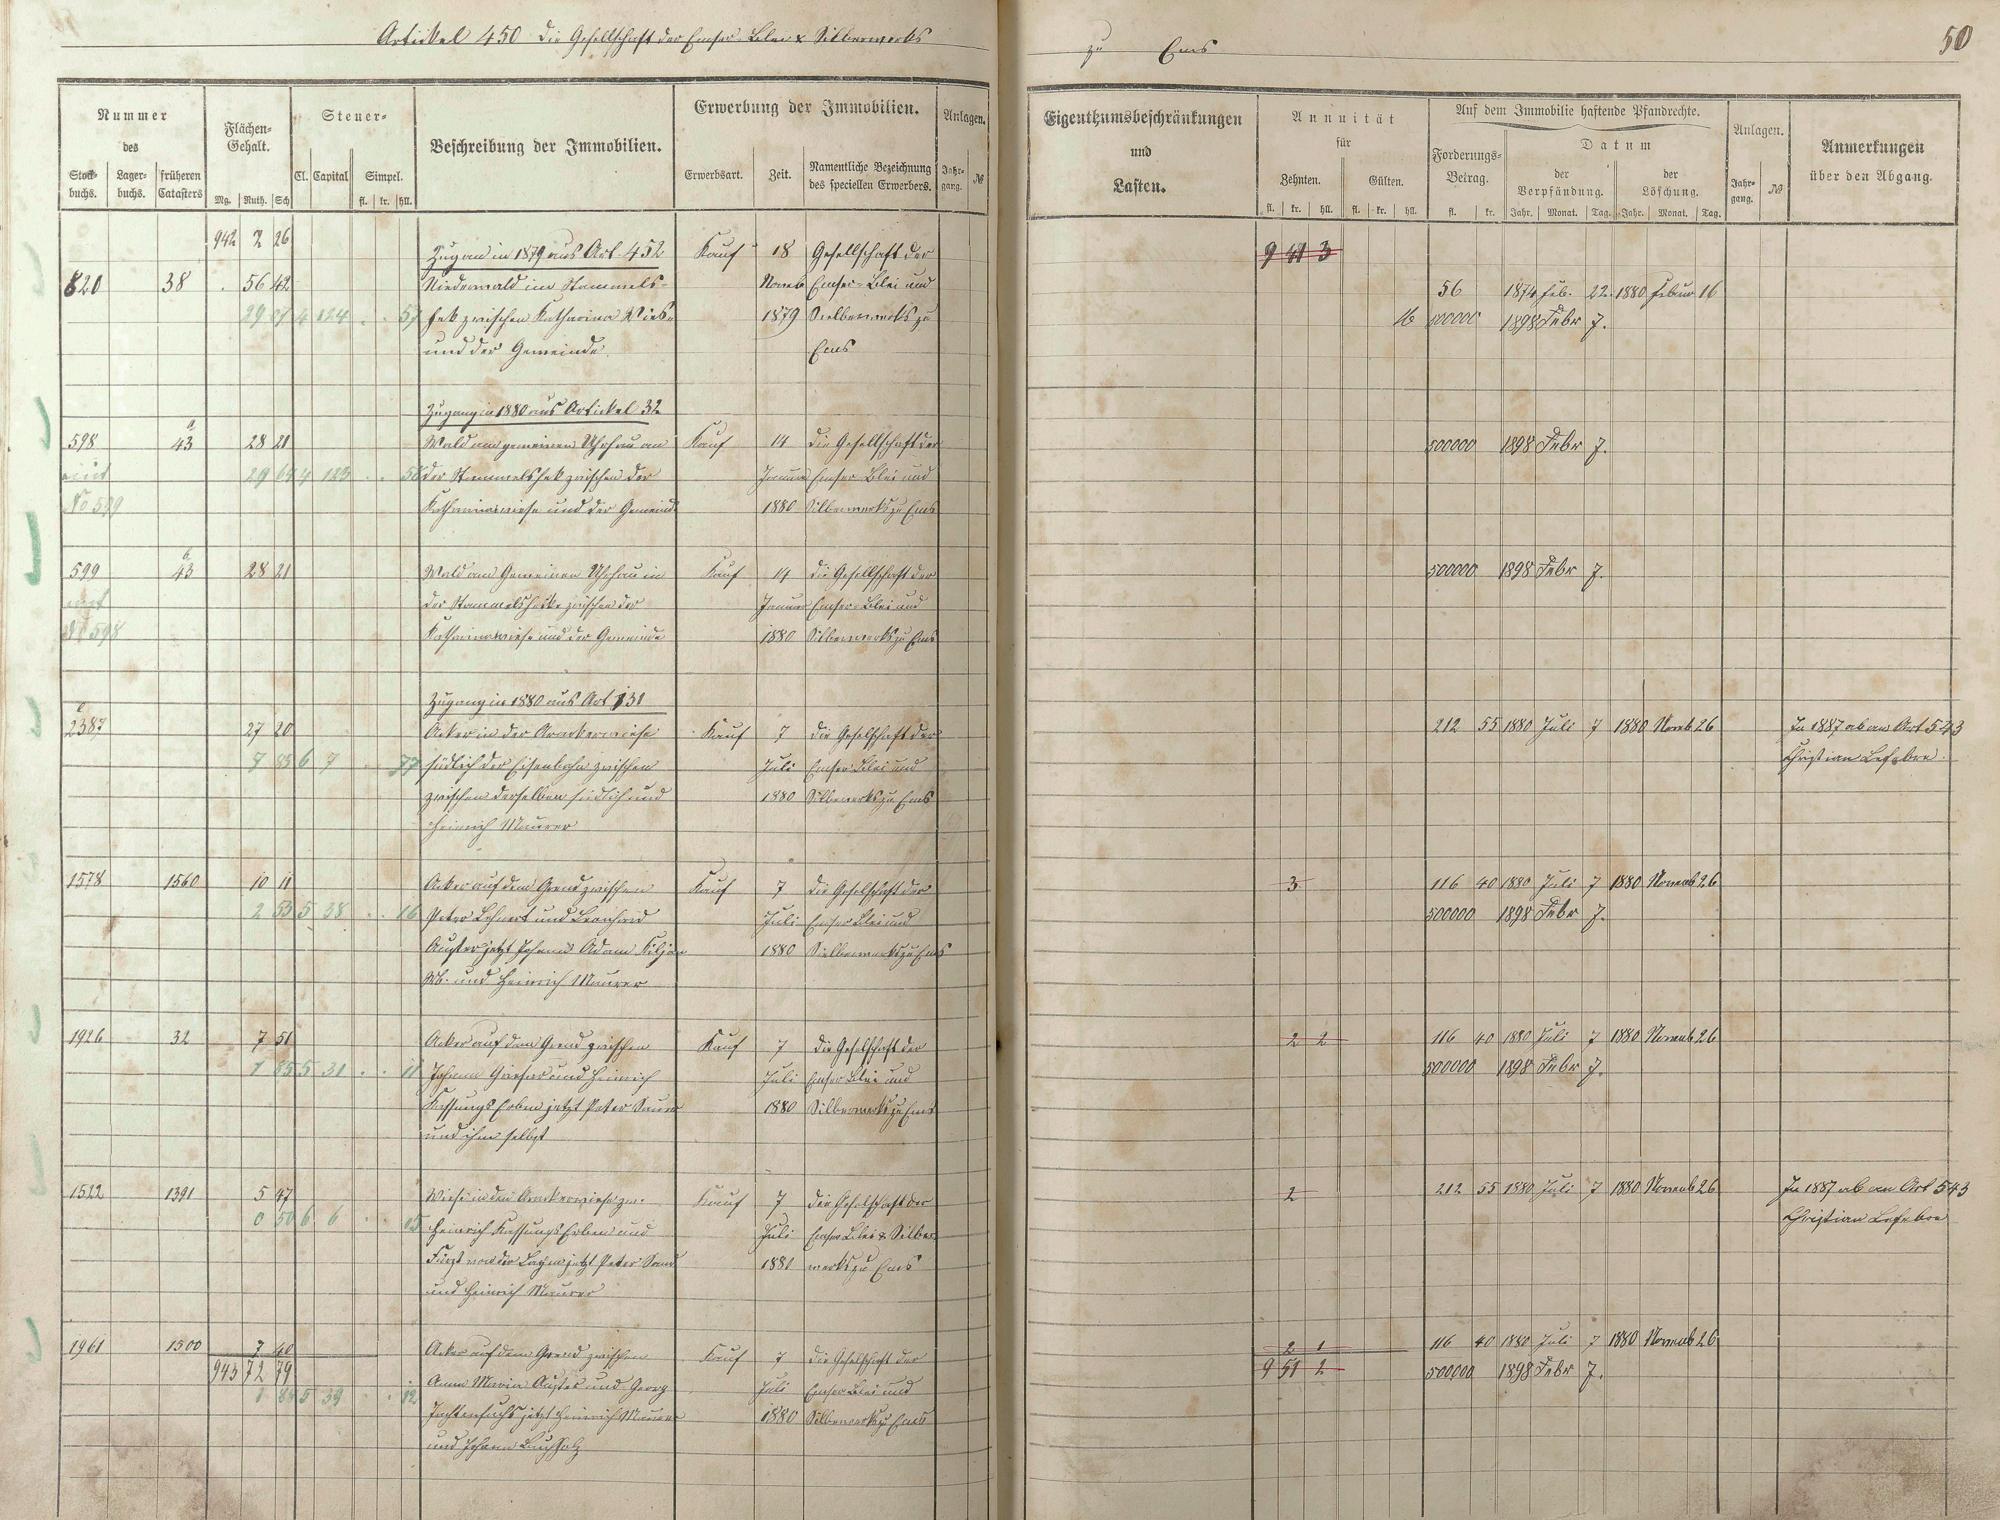 Artickel 450 Die Gesellschaft der Emser-Blei & Silberwerks
zu Ems
50
Nummer
des
Stockbuchs. Lagerbuchs. früheren Catasters
Flächen-Gehalt.
Mg. Ruth. Sch
Steuer-
Cl. Capital Simpel.
fl. kr. hll.
Beschreibung der Immobilien.
Erwerbung der Immobilien.
Erwerbsart. Zeit. Namentliche Bezeichnung des speciellen Erwerbers.
Anlagen.
Jahrgang. №
Eigenthumsbeschränkungen
und
Lasten.
Annuität
für
Zehnten. Gülten.
fl. kr. hll. fl. kr. hll.
Auf dem Immobilie haftende Pfandrechte.
Forderungs-Betrag.
fl. kr.
Datum
der Verpfändung. der Löschung.
Jahr. Monat. Tag. Jahr. Monat. Tag.
Anlagen.
Jahrgang. №
Anmerkungen
über den Abgang.
942 2 26
Zugang in 1879 aus Art. 452 Kauf 18 Gesellschaft der 9 41 3
620 38 56 42 Niederwald im Stammels- Novemb Emser-Blei und 56 1874 Feb. 22 1880 Februar 16
29 4 124 57 hek zwischen Katharina Wies- 1879 Silberwerks zu 16 500000 1898 Febr 7.
und der Gemeinde. Ems
Zugang in 1880 aus Artickel 32
598 43 a 28 21 Wald am gemeinen Uhrhau an Kauf 14 die Gesellschaft der 500000 1898 Febr 7.
mit 29 64 4 123 58 der Stammelshek zwischen der Januar Emser-Blei und
No 599 Katharinawiese und der Gemeinde 1880 Silberwerks zu Ems
599 43 b 28 21 Wald am Gemeinen Uhrhau in Kauf 14 die Gesellschaft der 500000 1898 Febr 7.
mit der Stammelshecke zwischen der Januar Emser-Blei und
No 598 Katharinawiese und der Gemeinde 1880 Silberwerks zu Ems
Zugang in 1880 aus Art 131
2387 27 20 Acker in der Aarckerwiese Kauf 7 die Gesellschaft der 212 55 1880 Juli 7 1880 Novemb 26 In 1887 ab an Art 543
85 6 7 77 südlich der Eisenbahn zwischen Juli Emser Blei und Christian Lefebre.
zwischen derselben südlich und 1880 Silberwerks zu Ems
Heinrich Maurer
1578 1560 10 11 Acker auf dem Grend zwischen Kauf 7 die Gesellschaft der 3 116 40 1880 Juli 7 1880 Novemb 26
2 53 5 38 16 Peter Lehnert und Leonhard Juli Emser Blei und 500000 1898 Febr 7.
Auster jetzt Johann Adam Kiljan 1880 Silberwerks zu Ems
Wb. und Heinrich Maurer
1926 32 7 51 Acker auf dem Grend zwischen Kauf 7 die Gesellschaft der 2 2 116 40 1880 Juli 7 1880 Novemb 26
1 85 5 31 11 Johann und Heinrich Juli Emser Blei und 500000 1898 Febr 7.
Erben jetzt Peter 1880 Silberwerks zu Ems
und ihm selbst
1522 1391 5 47 Wiese in den Aarckerwiese zw. Kauf 7 die Gesellschaft der 2 212 55 1880 Juli 7 1880 Novemb 26 In 1887 ab an Art 543
0 50 6 6 05 Heinrich Erben und Juli Emser Blei & Silber Christian Lefebre
Fürst von der Layen jetzt Peter 1880 werks zu Ems
und Heinrich Maurer
1961 1500 7 40 Acker auf dem Grend zwischen Kauf 7 die Gesellschaft der 2 1 116 40 1880 Juli 7 1880 Novemb 26
943 72 79 9 51 2 500000 1898 Febr 7.
1 85 5 39 12 Anna Maria Auster und Georg Juli Emser Blei und
jetzt Heinrich Maurer 1880 Silberwerks zu Ems
und Johann